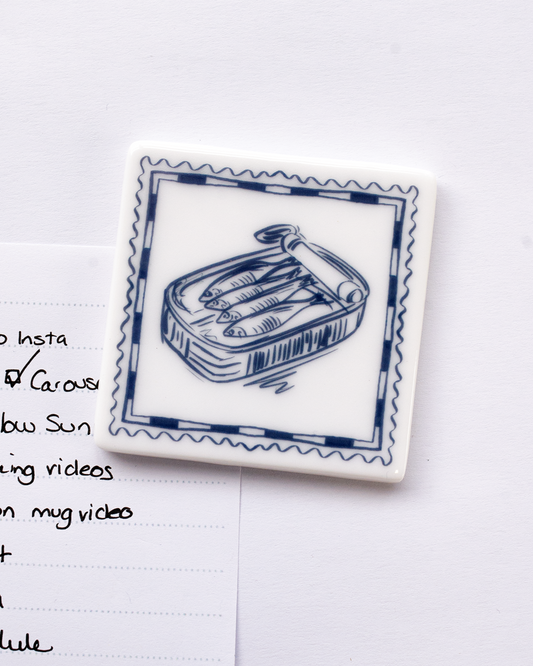 o Insta
Carous
low Sun
ing videos
on mug video
t
dule